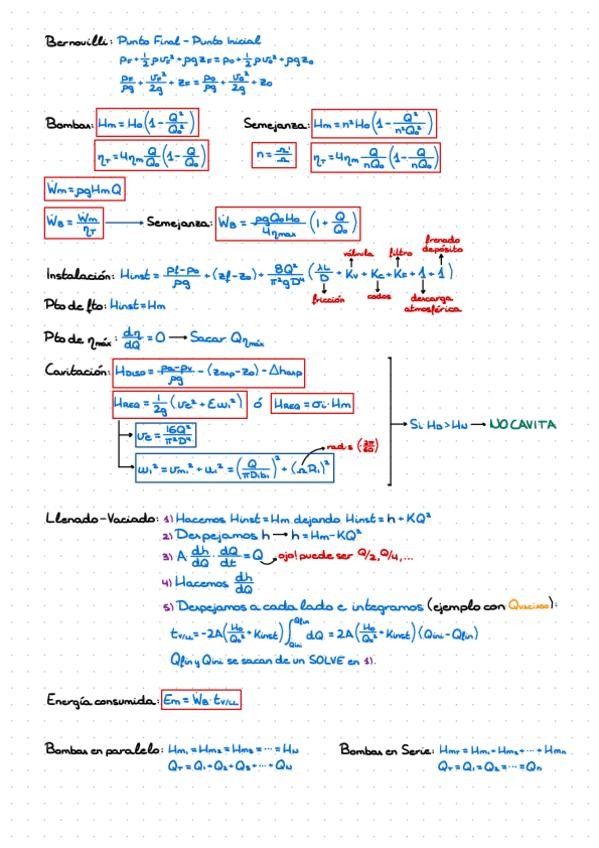 Bernouilli: Punto Final - Punto Inicial
P_F + 1/2 ρv_F² + ρgz_F = p_0 + 1/2 ρv_0² + ρgz_0
P_F/ρg + v_F²/2g + z_F = P_0/ρg + v_0²/2g + z_0
Bombas: Hm = H_0(1 - Q²/Q_0²) Semejanza: Hm = n²H_0(1 - Q²/n²Q_0²)
η_T = 4η_m Q/Q_0 (1 - Q/Q_0) n = Ω'/Ω η_T = 4η_m Q/nQ_0 (1 - Q/nQ_0)
Ẇm = ρgHmQ
Ẇ_B = Ẇm/η_T → Semejanza: Ẇ_B = ρgQ_0H_0/4η_max (1 + Q/Q_0)
válvula filtro frenado depósito
Instalación: Hinst = (pf - p_0)/ρg + (zf - z_0) + 8Q²/π²gD⁴ (λL/D + K_V + K_C + K_F + 1 + 1)
fricción codos descarga atmosférica
Pto de fto: Hinst = Hm
Pto de η_máx: dη/dQ = 0 → Sacar Q_ηmáx
Cavitación: H_DISP = (p_a - p_v)/ρg - (z_asp - z_0) - Δh_asp
H_REQ = 1/2g (v_e² + εω_1²) ó H_REQ = σ_i · Hm
Si H_D > H_N → NO CAVITA
v_e = 16Q²/π²D⁴
rad/s (·2π/60)
ω_1² = v_m1² + u_1² = (Q/πD_1b_1)² + (ΩR_1)²
Llenado-Vaciado: 1) Hacemos Hinst = Hm dejando Hinst = h + KQ²
2) Despejamos h → h = Hm - KQ²
3) A · dh/dQ · dQ/dt = Q ojo! puede ser Q/2, Q/4, ...
4) Hacemos dh/dQ
5) Despejamos a cada lado e integramos (ejemplo con Qvaciado):
t_V/LL = -2A(H_0/Q_0² + Kinst) ∫_Qini^Qfin dQ = 2A(H_0/Q_0² + Kinst)(Qini - Qfin)
Qfin y Qini se sacan de un SOLVE en 1).
Energía consumida: Em = Ẇ_B · t_V/LL
Bombas en paralelo: Hm_1 = Hm_2 = Hm_3 = ... = H_N Bombas en Serie: Hm_T = Hm_1 + Hm_2 + ... + Hm_n
Q_T = Q_1 + Q_2 + Q_3 + ... + Q_N Q_T = Q_1 = Q_2 = ... = Q_n